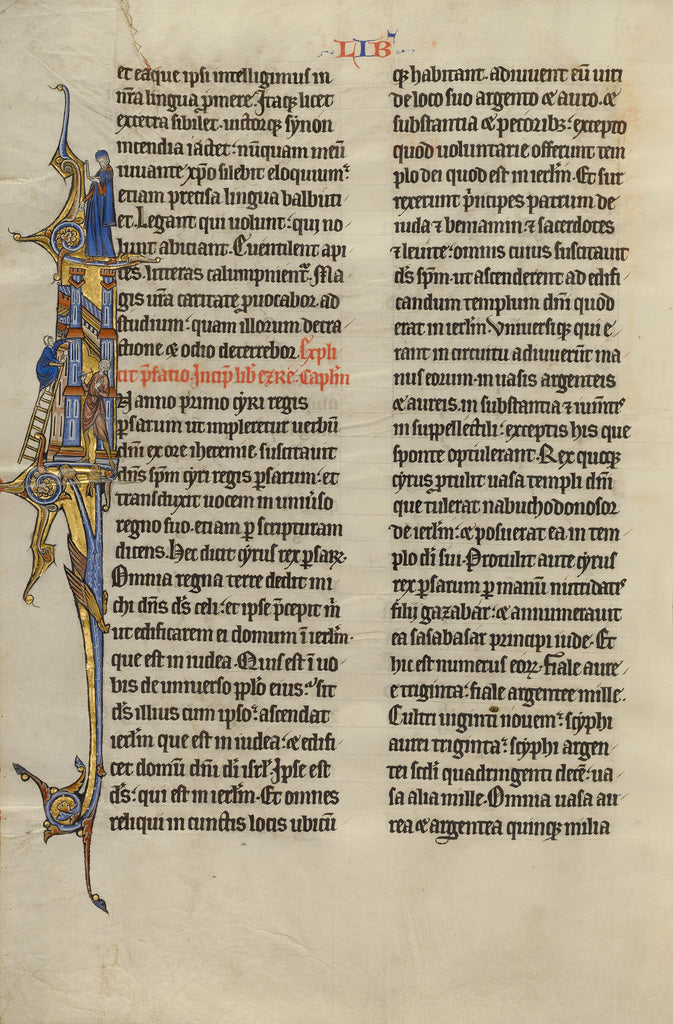 LIB
et eaque ipsi intelligimus in
nr̄a lingua ꝓmere. Itaqꝫ licet
excetra sibilet. uictorqꝫ synon
incendia iactet: nūquam meū
iuuante xp̄o silebit eloquium.
etiam precisa lingua balbuti
et. Legant qui uolunt: qui no
lunt abiciant. Euentilent api
ces. litteras calumpnient. Ma
gis ur̄a caritate ꝓuocabor ad
studium: quam illorum detra
ctione & odio deterrebor. Expli
cit p̄fatio. Incip̄ lib̄ ezre. Caplm̄
N anno primo cyri regis
ꝑsarum ut impleretur uerbū
dn̄i ex ore iheremie. suscitauit
dn̄s sp̄m cyri regis ꝑsarum: et
transduxit uocem in uniuˀso
regno suo. etiam ꝑ scripturam
dicens. Hec dicit cyrus rex ꝑsaꝝ.
Omnia regna terre dedit mi
chi dn̄s ds̄ celi: et ipse p̄cepit m̄
ut edificarem ei domum ī ierl̄m.
que est in iudea. Quis est ī uo
bis de uniuerso ppl̄o eius: sit
ds̄ illius cum ipso: ascendat
ierl̄m que est in iudea: & edifi
cet domū dn̄i di isrl̄. Ipse est
ds̄: qui est in ierl̄m. Et omnes
reliqui in cunctis locis ubicū
qꝫ habitant. adiuuent eū uiri
de loco suo argento & auro. &
substantia & pecoribꝫ: excepto
quod uoluntarie offerunt tem
plo dei quod est in ierl̄m. Et sur
rexerunt p̄ncipes patrum de
iuda ⁊ beniamin: ⁊ sacerdotes
⁊ leuite: omnis cuius suscitauit
ds̄ sp̄m. ut ascenderent ad edifi
candum templum dn̄i quod
erat in ierl̄m. Vniuersiqꝫ qui e
rant in circuitu adiuuerūt ma
nus eorum. in uasis argenteis
& aureis. in substantia ⁊ iumt̄s
in suppellectili: exceptis his que
sponte optulerant. Rex quoqꝫ
cyrus ꝓtulit uasa templi dn̄i
que tulerat nabuchodonosor
de ierl̄m: & posuerat ea in tem
plo di sui. Protulit aute cyrus
rex ꝑsarum ꝑ manū mitridatis
filii gazabar: & annumerauit
ea sasabasar principi iude. Et
hic est numerus eoꝝ. Fiale auree
e triginta: fiale argentee mille.
Cultri uiginti nouem: scyphi
aurei triginta: scyphi argen
tei scd̄i quadringenti decē: ua
sa alia mille. Omnia uasa au
rea & argentea quinqꝫ milia